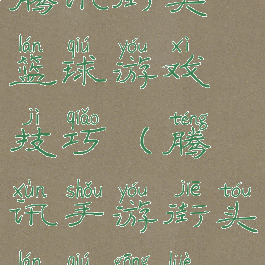 腾讯手游街头
lán qiú yóu xì
篮球游戏
jì qiǎo ( téng
技巧(腾
xùn shǒu yóu jiē tóu
讯手游街头
lán qiú gōng lüè